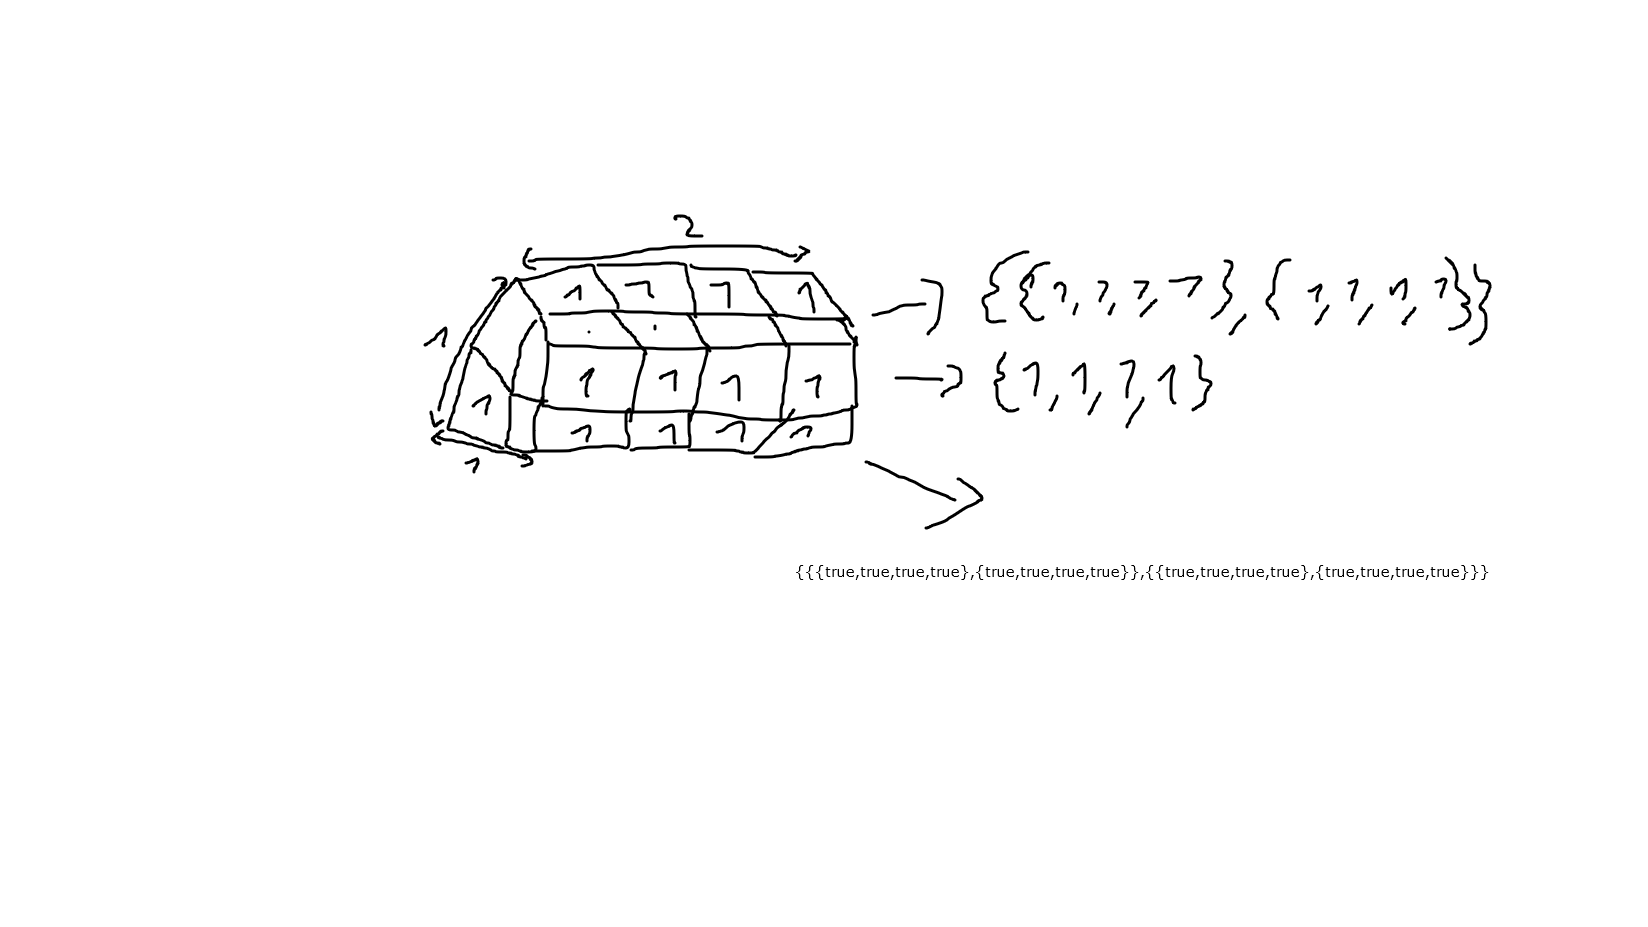 2
1 1 1 1
{{1,1,1,1},{1,1,1,1}}
1
1 1 1 1
{1,1,1,1}
1
1 1 1 1
1
{{{true,true,true,true},{true,true,true,true}},{{true,true,true,true},{true,true,true,true}}}